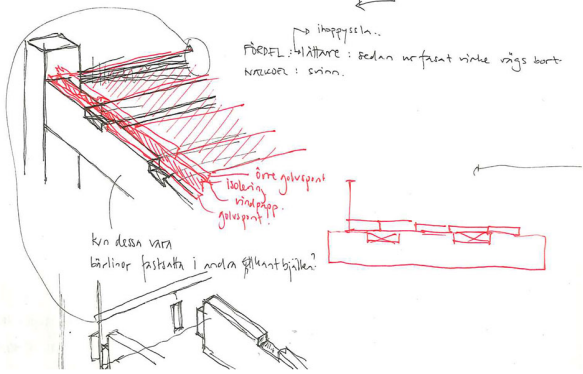 ihoppyssla..
FÖRDEL: lättare: sedan urfasat virke vägs bort.
NACKDEL: svinn.
övre golvspont
isolering
vindpapp.
golvspont.
kan dessa vara
bärlinor fastsatta i andra bjälken?